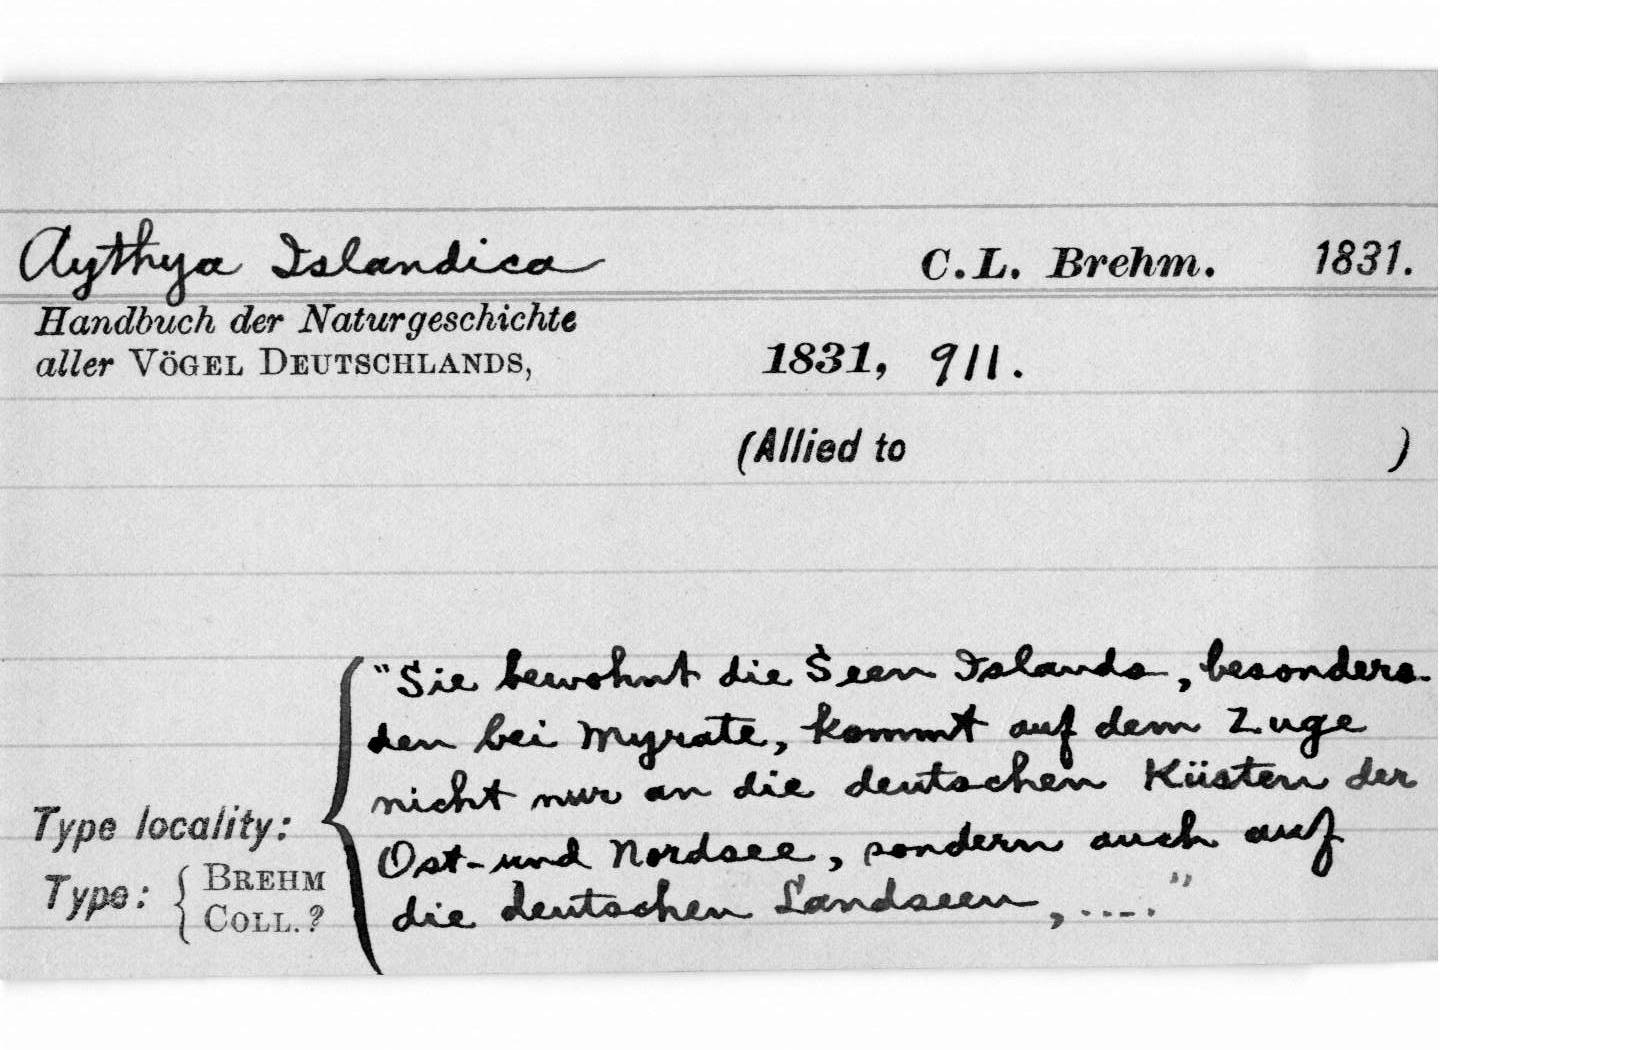 Aythya Islandica C.L. Brehm. 1831.
Handbuch der Naturgeschichte
aller VÖGEL DEUTSCHLANDS, 1831, 911.
(Allied to )
"Sie bewohnt die Seen Islands, besonders
den bei Myrate, kommt auf dem Zuge
nicht nur an die deutschen Küsten der
Type locality: Ost- und Nordsee, sondern auch auf
Type: { BREHM COLL. ? die deutschen Landseen, ...."